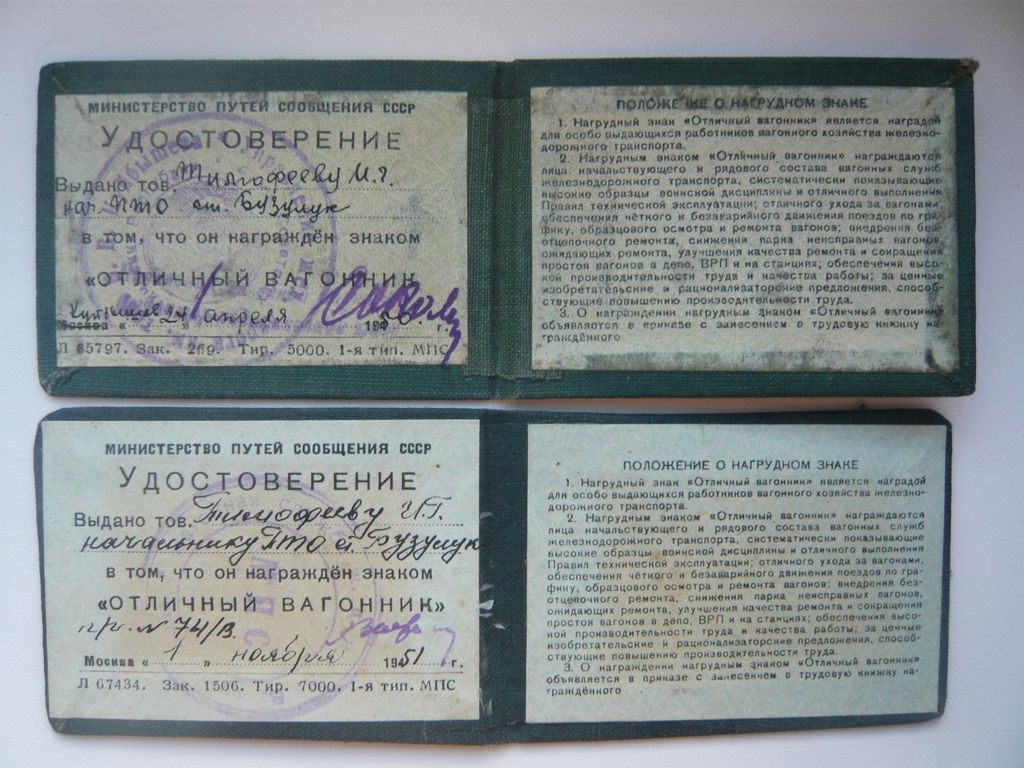 МИНИСТЕРСТВО ПУТЕЙ СООБЩЕНИЯ СССР
УДОСТОВЕРЕНИЕ
Выдано тов. Тимофееву И.Г.
нач. ПТО ст. Бузулук
в том, что он награждён знаком
«ОТЛИЧНЫЙ ВАГОННИК
Куйбышев
Москва « 24 апреля 195 6. г.
Л 65797. Зак. 269. Тир. 5000. 1-я тип. МПС
ПОЛОЖЕНИЕ О НАГРУДНОМ ЗНАКЕ
1. Нагрудный знак «Отличный вагонник» является наградой
для особо выдающихся работников вагонного хозяйства железно-
дорожного транспорта.
2. Нагрудным знаком «Отличный вагонник» награждаются
лица начальствующего и рядового состава вагонных служб
железнодорожного транспорта, систематически показывающие
высокие образцы воинской дисциплины и отличного выполнения
Правил технической эксплуатации; отличного ухода за вагонами,
обеспечения чёткого и безаварийного движения поездов по гра-
фику, образцового осмотра и ремонта вагонов; внедрения без-
отцепочного ремонта, снижения парка неисправных вагонов,
ожидающих ремонта, улучшения качества ремонта и сокращения
простоя вагонов в депо, ВРП и на станциях; обеспечения высо-
кой производительности труда и качества работы; за ценные
изобретательские и рационализаторские предложения, способ-
ствующие повышению производительности труда.
3. О награждении нагрудным знаком «Отличный вагонник»
объявляется в приказе с занесением в трудовую книжку на-
граждённого
МИНИСТЕРСТВО ПУТЕЙ СООБЩЕНИЯ СССР
УДОСТОВЕРЕНИЕ
Выдано тов. Тимофееву И.Г.
начальнику ПТО ст. Бузулук
в том, что он награждён знаком
«ОТЛИЧНЫЙ ВАГОННИК»
пр. N 74/В.
Москва « 1 » ноября 1951 г.
Л 67434. Зак. 1506. Тир. 7000. 1-я тип. МПС
ПОЛОЖЕНИЕ О НАГРУДНОМ ЗНАКЕ
1. Нагрудный знак «Отличный вагонник» является наградой
для особо выдающихся работников вагонного хозяйства железно-
дорожного транспорта.
2. Нагрудным знаком «Отличный вагонник» награждаются
лица начальствующего и рядового состава вагонных служб
железнодорожного транспорта, систематически показывающие
высокие образцы воинской дисциплины и отличного выполнения
Правил технической эксплуатации; отличного ухода за вагонами;
обеспечения чёткого и безаварийного движения поездов по гра-
фику, образцового осмотра и ремонта вагонов; внедрения без-
отцепочного ремонта, снижения парка неисправных вагонов,
ожидающих ремонта, улучшения качества ремонта и сокращения
простоя вагонов в депо, ВРП и на станциях; обеспечения высо-
кой производительности труда и качества работы; за ценные
изобретательские и рационализаторские предложения, способ-
ствующие повышению производительности труда.
3. О награждении нагрудным знаком «Отличный вагонник»
объявляется в приказе с занесением в трудовую книжку на-
граждённого